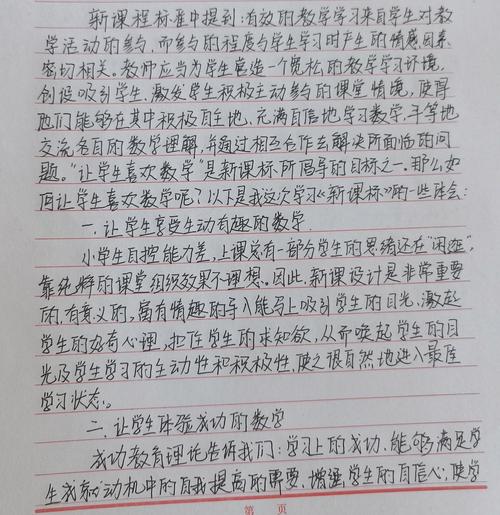 新课程标准中提到:有效的数学学习来自学生对教
学活动的参与,而参与的程度与学生学习时产生的情感因素
密切相关。教师应当为学生营造一个宽松的数学学习环境,
创设吸引学生、激发学生积极主动参与的课堂情境,使得
他们能够在其中积极自主地、充满自信地学习数学,平等地
交流各自的数学理解,并通过相互合作去解决所面临的问
题。"让学生喜欢数学"是新课标所倡导的目标之一。那么,如
何让学生喜欢数学呢?以下是我这次学习《新课标》的一些体会:
一.让学生享受生动有趣的数学.
小学生自控能力差,上课总有一部分学生的思绪还在"闲逛",
靠纯粹的课堂组织效果不理想。因此,新课设计是非常重要
的,有意义的,富有情趣的导入能马上吸引学生的目光,激起
学生的好奇心理,抓住学生的求知欲,从而唤起学生的目
光及学生学习的主动性和积极性,使之很自然地进入最佳
学习状态。
二.让学生体验成功的数学
成功教育理论告诉我们:学习上的成功,能够满足学
生成就动机中的自我提高的需要,增强学生的自信心;使学
第 页